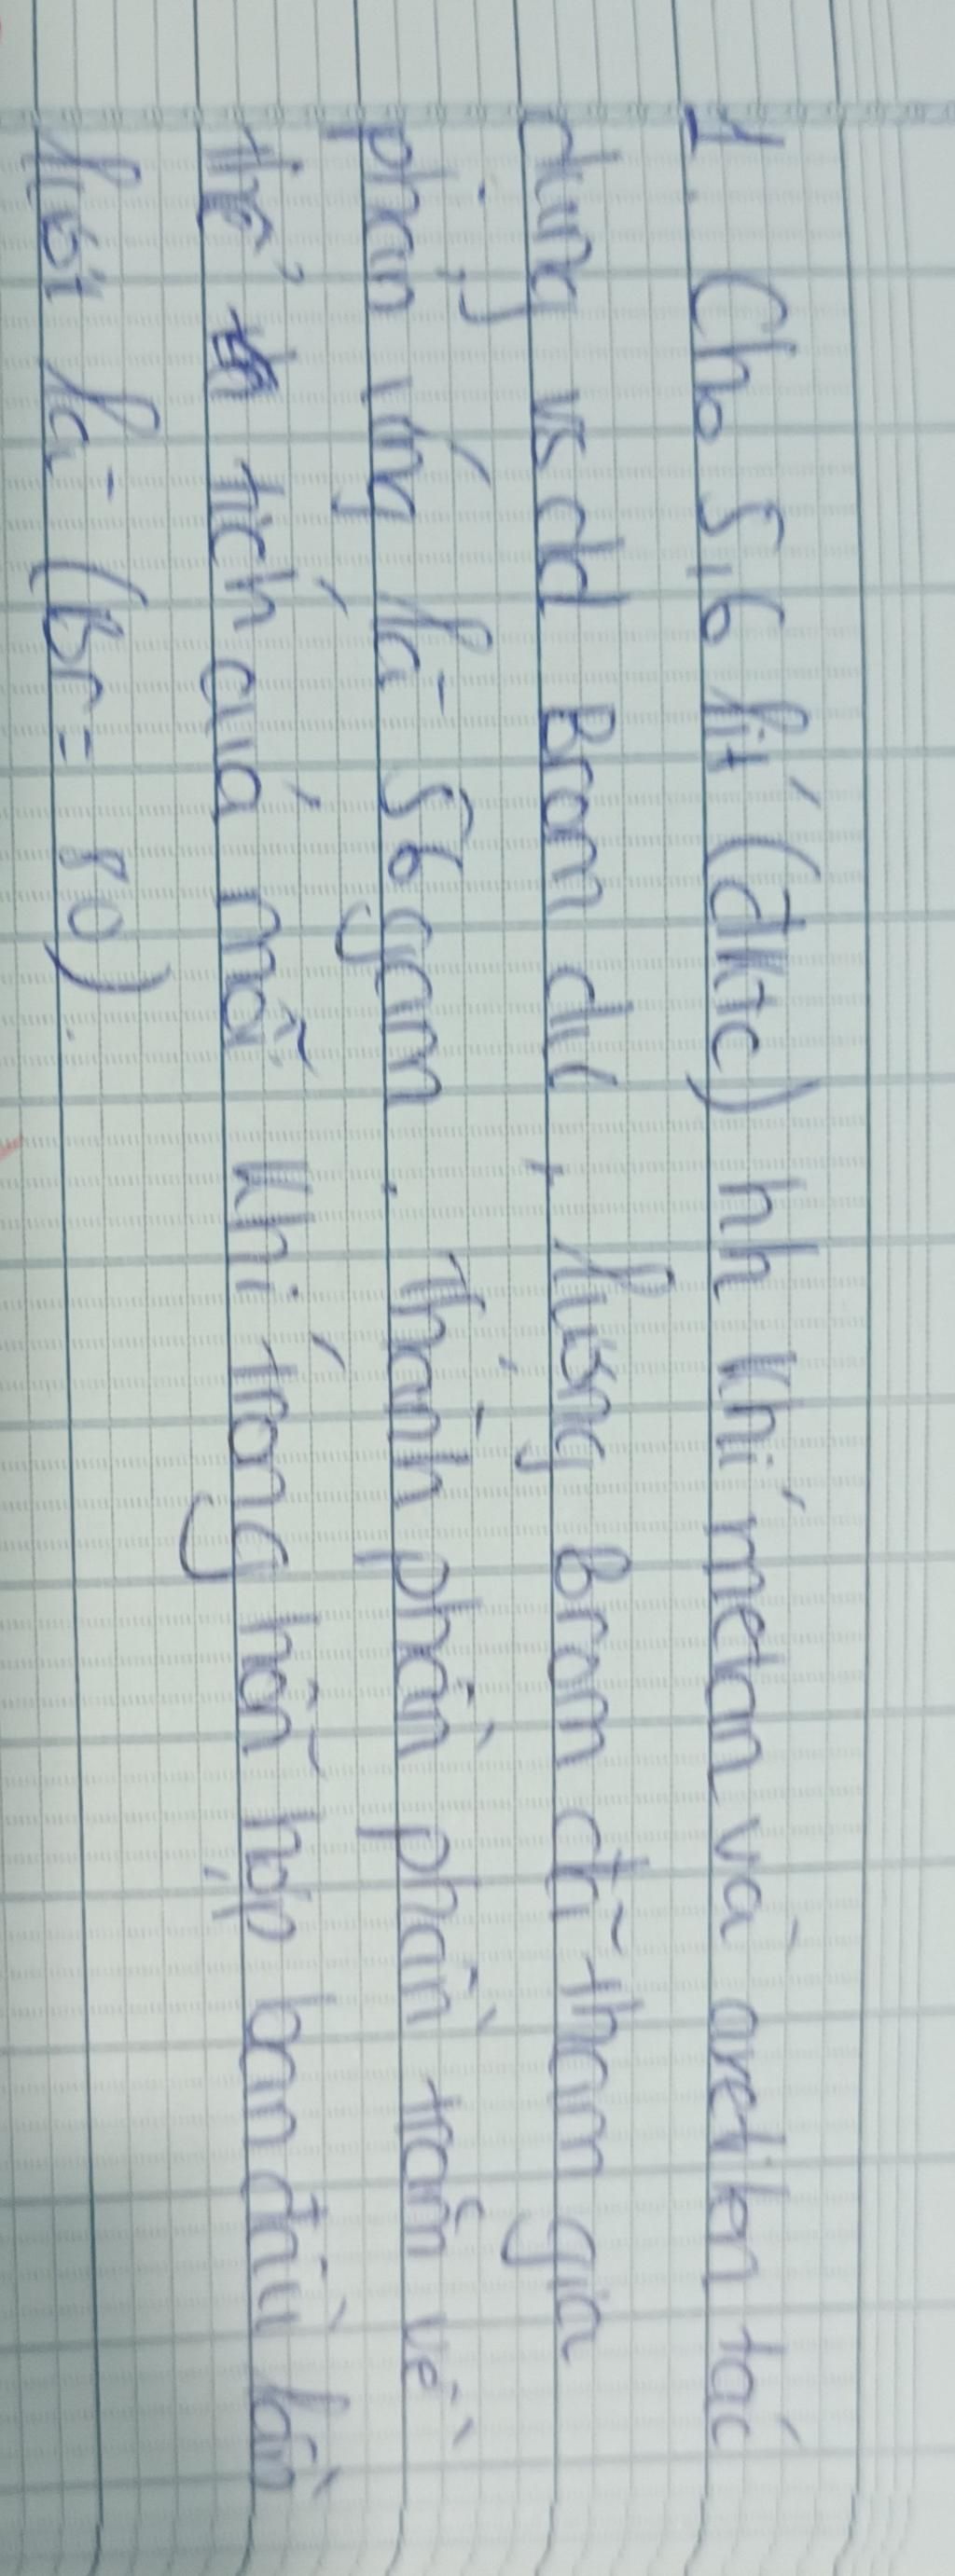 1. Cho 5,6 lít (đktc) hh khí metan và axetilen tác
dụng vs dd Brom dư, lượng Brom đã tham gia
phản ứng là 56 gam. Thành phần phần trăm về
thể tích của mỗi khí trong hỗn hợp ban đầu lần
lượt là (Br = 80).